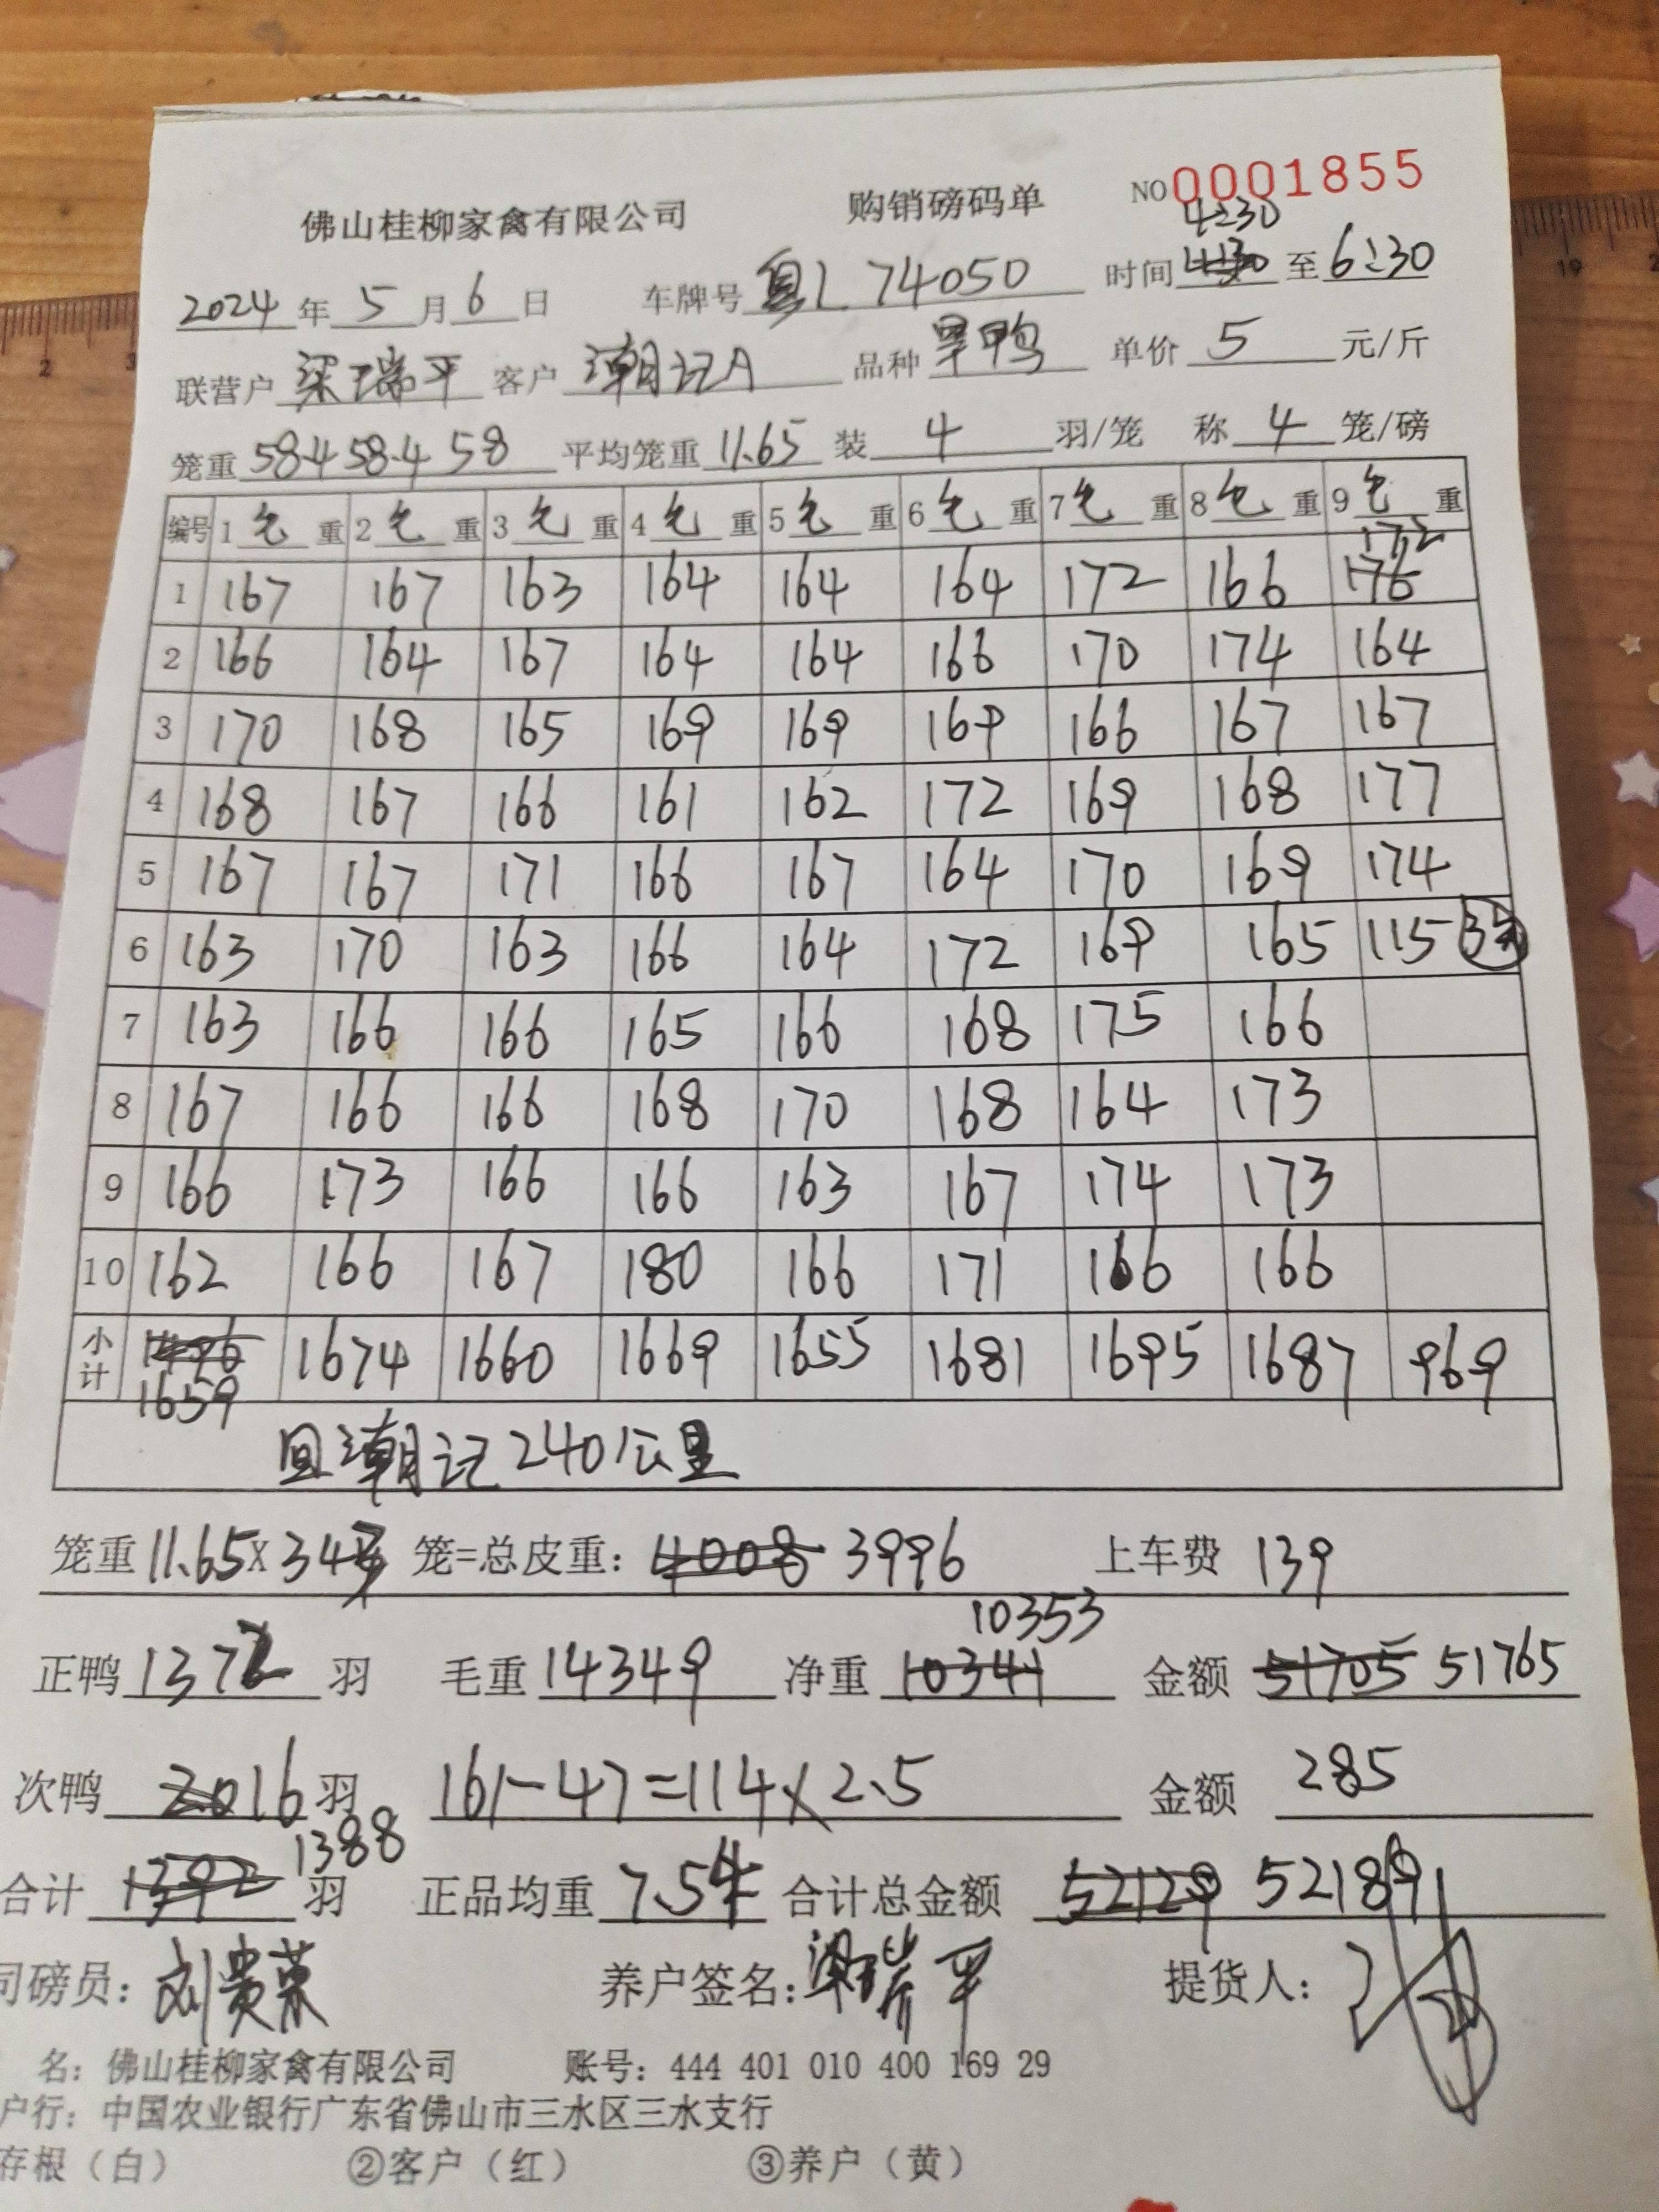 佛山桂柳家禽有限公司 购销磅码单 NO 0001855
4:30
2024 年 5 月 6 日 车牌号 粤L 74050 时间 至 6:30
联营户 梁瑞平 客户 潮记A 品种 旱鸭 单价 5 元/斤
笼重 58.4 58.4 58 平均笼重 11.65 装 4 羽/笼 称 4 笼/磅
编号 1 毛 重 2 毛 重 3 毛 重 4 毛 重 5 毛 重 6 毛 重 7 毛 重 8 毛 重 9 毛 重
172
1 167 167 163 164 164 164 172 166 176
2 166 164 167 164 164 166 170 174 164
3 170 168 165 169 169 169 166 167 167
4 168 167 166 161 162 172 169 168 177
5 167 167 171 166 167 164 170 169 174
6 163 170 163 166 164 172 169 165 115
7 163 166 166 165 166 168 175 166
8 167 166 166 168 170 168 164 173
9 166 173 166 166 163 167 174 173
10 162 166 167 180 166 171 166 166
小计 1496 1674 1660 1669 1655 1681 1695 1687 969
1659
回潮记 240公里
笼重 11.65 X 343 笼=总皮重: 4008 3996 上车费 139
10353
正鸭 1372 羽 毛重 14349 净重 10341 金额 51705 51765
次鸭 20 16 羽 161-47=114×2.5 金额 285
1388
合计 1392 羽 正品均重 7.54 合计总金额 52129 52189
司磅员: 刘贵荣 养户签名: 梁瑞平 提货人:
名: 佛山桂柳家禽有限公司 账号: 444 401 010 400 169 29
户行: 中国农业银行广东省佛山市三水区三水支行
存根（白） ②客户（红） ③养户（黄）